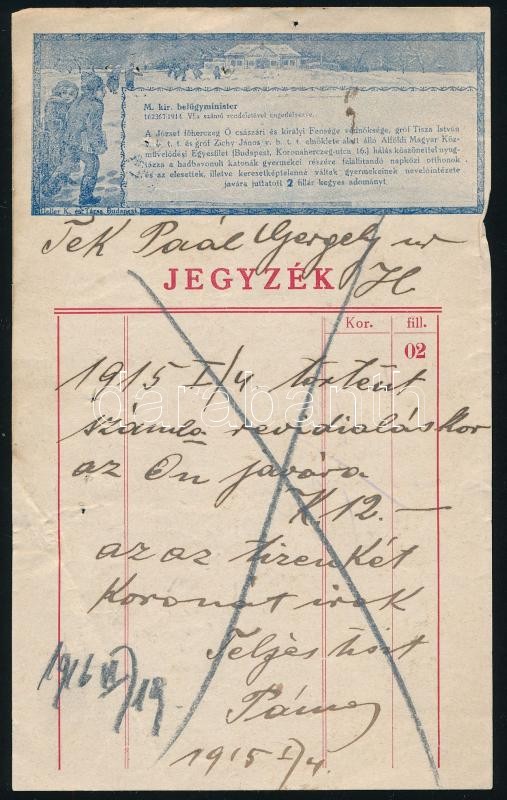 M. kir. belügyminister
162367/1914. VI.a számú rendeletével engedélyezve.
A József főherczeg Ő császári és királyi Fensége védnöksége, gróf Tisza István
v. b. t. t. és gróf Zichy János v. b. t. t. elnöklete alatt álló Alföldi Magyar Köz-
művelődési Egyesület (Budapest, Koronaherczeg-utca 16.) hálás köszönettel nyug-
tázza a hadbavonult katonák gyermekei részére felállítandó napközi otthonok
és az elesettek, illetve keresetképtelenné váltak gyermekeinek nevelőintézete
javára juttatott 2 fillér kegyes adományt.
Haller K. és Társa Budapest
Tek Paál Gergely ur
H
JEGYZÉK
Kor. fill.
02
1915 I/4. történt
számla revidialáskor
az Ön javára
K. 12.—
azaz tizenkét
Koronát irok
Teljes
1916 VI/19.
1915 I/4.
darabanth